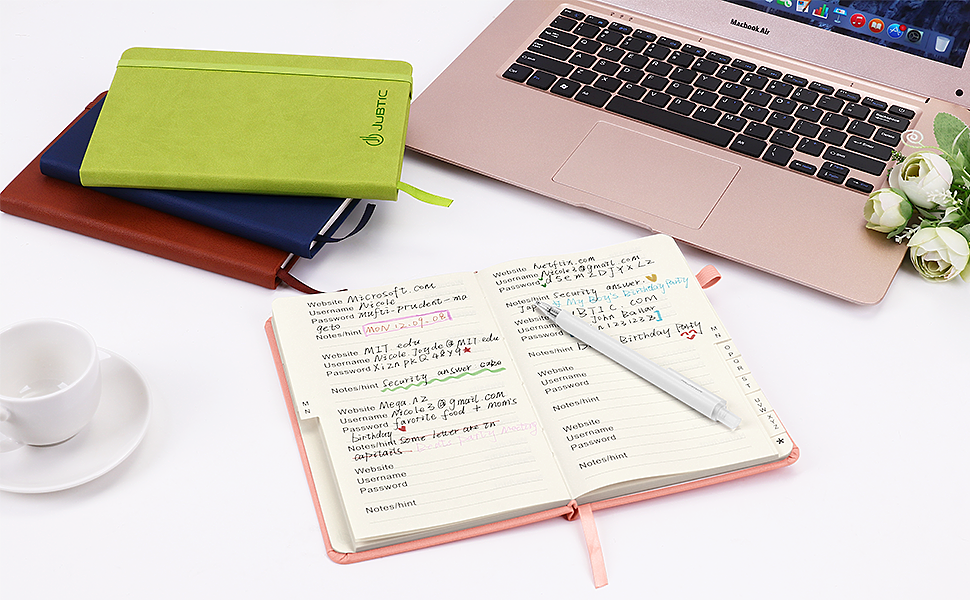 JUBTIC
Macbook Air
Website Microsoft.com
Username Nicole
Password mufti-prudent-ma
geto
Notes/hint MON 12.09.08
Website MIT edu
Username Nicole.Joyde@MIT.edu
Password XiznpkQ48y9
Notes/hint Security answer cabo
Website Mega.nz
Username Nicole3@gmail.com
Password favorite food + mom's
birthday
Notes/hint Some letter are in
capitals
Website
Username
Password
Notes/hint
M
N
Website Netflix.com
Username Nicole3@gmail.com
Password dsem2DjyxLz
Notes/hint Security answer.
My Boy's Birthday Party
Website IBTIC com
John Ballar
Notes/hint Birthday Party
Website
Username
Password
Notes/hint
Website
Username
Password
Notes/hint
M
N
O
P
Q
R
S
T
U
V
W
X
Y
Z
*